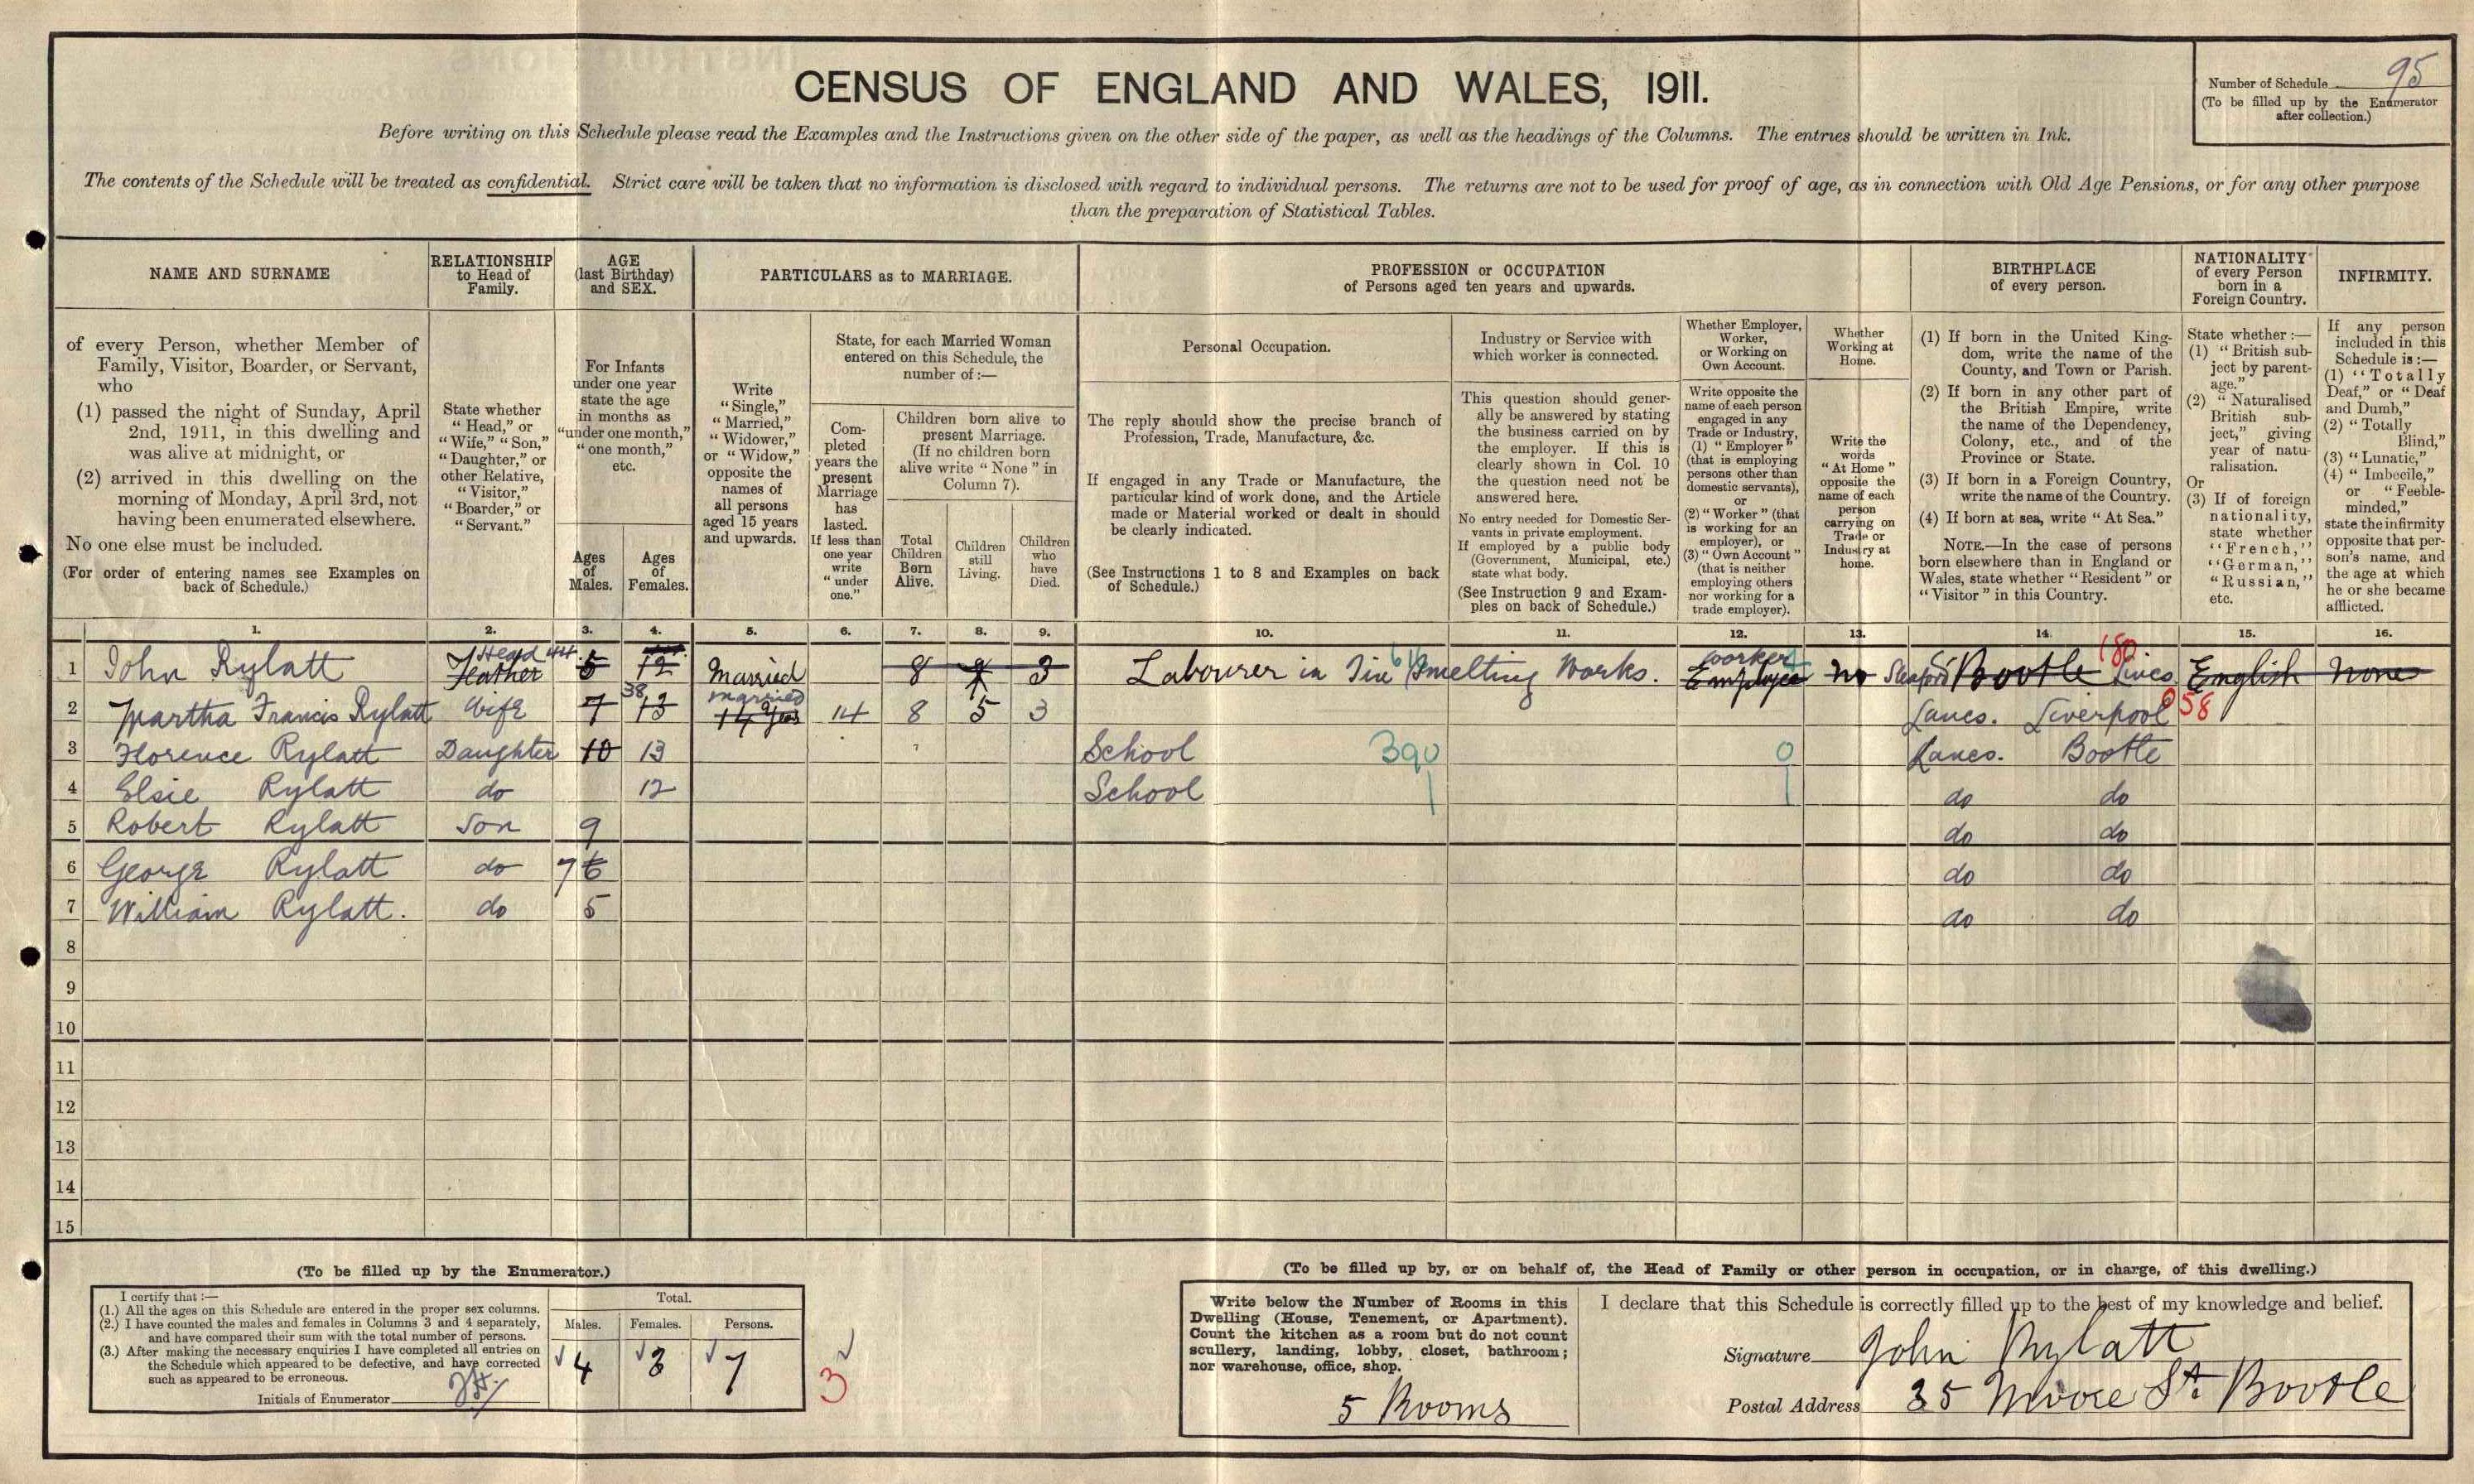 CENSUS OF ENGLAND AND WALES, 1911.
Number of Schedule 95
(To be filled up by the Enumerator
after collection.)
Before writing on this Schedule please read the Examples and the Instructions given on the other side of the paper, as well as the headings of the Columns. The entries should be written in Ink.
The contents of the Schedule will be treated as confidential. Strict care will be taken that no information is disclosed with regard to individual persons. The returns are not to be used for proof of age, as in connection with Old Age Pensions, or for any other purpose
than the preparation of Statistical Tables.
NAME AND SURNAME
of every Person, whether Member of
Family, Visitor, Boarder, or Servant,
who
(1) passed the night of Sunday, April
2nd, 1911, in this dwelling and
was alive at midnight, or
(2) arrived in this dwelling on the
morning of Monday, April 3rd, not
having been enumerated elsewhere.
No one else must be included.
(For order of entering names see Examples on
back of Schedule.)
RELATIONSHIP
to Head of
Family.
State whether
"Head," or
"Wife," "Son,"
"Daughter," or
other Relative,
"Visitor,"
"Boarder," or
"Servant."
AGE
(last Birthday)
and SEX.
For Infants
under one year
state the age
in months as
"under one month,"
"one month,"
etc.
Ages
of
Males.
Ages
of
Females.
PARTICULARS as to MARRIAGE.
Write
"Single,"
"Married,"
"Widower,"
or "Widow,"
opposite the
names of
all persons
aged 15 years
and upwards.
State, for each Married Woman
entered on this Schedule, the
number of:—
Com-
pleted
years the
present
Marriage
has
lasted.
If less than
one year
write
"under
one."
Children born alive to
present Marriage.
(If no children born
alive write "None" in
Column 7).
Total
Children
Born
Alive.
Children
still
Living.
Children
who
have
Died.
PROFESSION or OCCUPATION
of Persons aged ten years and upwards.
Personal Occupation.
The reply should show the precise branch of
Profession, Trade, Manufacture, &c.
If engaged in any Trade or Manufacture, the
particular kind of work done, and the Article
made or Material worked or dealt in should
be clearly indicated.
(See Instructions 1 to 8 and Examples on back
of Schedule.)
Industry or Service with
which worker is connected.
This question should gener-
ally be answered by stating
the business carried on by
the employer. If this is
clearly shown in Col. 10
the question need not be
answered here.
No entry needed for Domestic Ser-
vants in private employment.
If employed by a public body
(Government, Municipal, etc.)
state what body.
(See Instruction 9 and Exam-
ples on back of Schedule.)
Whether Employer,
Worker,
or Working on
Own Account.
Write opposite the
name of each person
engaged in any
Trade or Industry,
(1) "Employer"
(that is employing
persons other than
domestic servants),
or
(2) "Worker" (that
is working for an
employer), or
(3) "Own Account"
(that is neither
employing others
nor working for a
trade employer).
Whether
Working at
Home.
Write the
words
"At Home"
opposite the
name of each
person
carrying on
Trade or
Industry at
home.
BIRTHPLACE
of every person.
(1) If born in the United King-
dom, write the name of the
County, and Town or Parish.
(2) If born in any other part of
the British Empire, write
the name of the Dependency,
Colony, etc., and of the
Province or State.
(3) If born in a Foreign Country,
write the name of the Country.
(4) If born at sea, write "At Sea."
NOTE.—In the case of persons
born elsewhere than in England or
Wales, state whether "Resident" or
"Visitor" in this Country.
NATIONALITY
of every Person
born in a
Foreign Country.
State whether:—
(1) "British sub-
ject by parent-
age."
(2) "Naturalised
British sub-
ject," giving
year of natu-
ralisation.
Or
(3) If of foreign
nationality,
state whether
"French,"
"German,"
"Russian,"
etc.
INFIRMITY.
If any person
included in this
Schedule is:—
(1) "Totally
Deaf," or "Deaf
and Dumb,"
(2) "Totally
Blind,"
(3) "Lunatic,"
(4) "Imbecile,"
or "Feeble-
minded,"
state the infirmity
opposite that per-
son's name, and
the age at which
he or she became
afflicted.
1. 2. 3. 4. 5. 6. 7. 8. 9. 10. 11. 12. 13. 14. 15. 16.
Head 44 Worker 180
1 John Rylatt Feather 5 12 Married 8 3 Labourer in Tin Smelting Works. Employee no Sleaford Bootle Lincs English None
38 married
2 Martha Francis Rylatt Wife 7 13 14 years 14 8 5 3 Lancs. Liverpool 058
3 Florence Rylatt Daughter 10 13 School 390 0 Lancs. Bootle
4 Elsie Rylatt do 12 School do do
5 Robert Rylatt Son 9 do do
6 George Rylatt do 7 6 do do
7 William Rylatt. do 5 do do
8
9
10
11
12
13
14
15
(To be filled up by the Enumerator.)
I certify that:—
(1.) All the ages on this Schedule are entered in the proper sex columns.
(2.) I have counted the males and females in Columns 3 and 4 separately,
and have compared their sum with the total number of persons.
(3.) After making the necessary enquiries I have completed all entries on
the Schedule which appeared to be defective, and have corrected
such as appeared to be erroneous.
Initials of Enumerator
Total.
Males. Females. Persons.
4 3 7
3
(To be filled up by, or on behalf of, the Head of Family or other person in occupation, or in charge, of this dwelling.)
Write below the Number of Rooms in this
Dwelling (House, Tenement, or Apartment).
Count the kitchen as a room but do not count
scullery, landing, lobby, closet, bathroom;
nor warehouse, office, shop.
5 Rooms
I declare that this Schedule is correctly filled up to the best of my knowledge and belief.
Signature John Rylatt
Postal Address 35 Moore St. Bootle